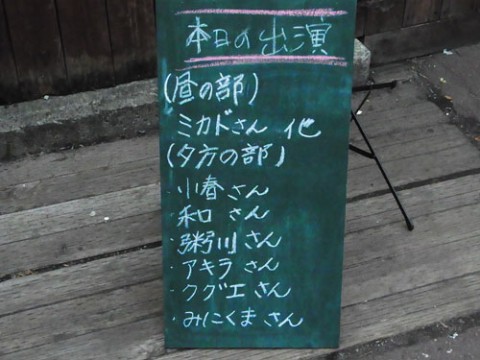 本日の出演
(昼の部)
ミカドさん 他
(夕方の部)
・小春さん
・和口さん
・粥川さん
・アキラさん
・クグエさん
・みにくまさん